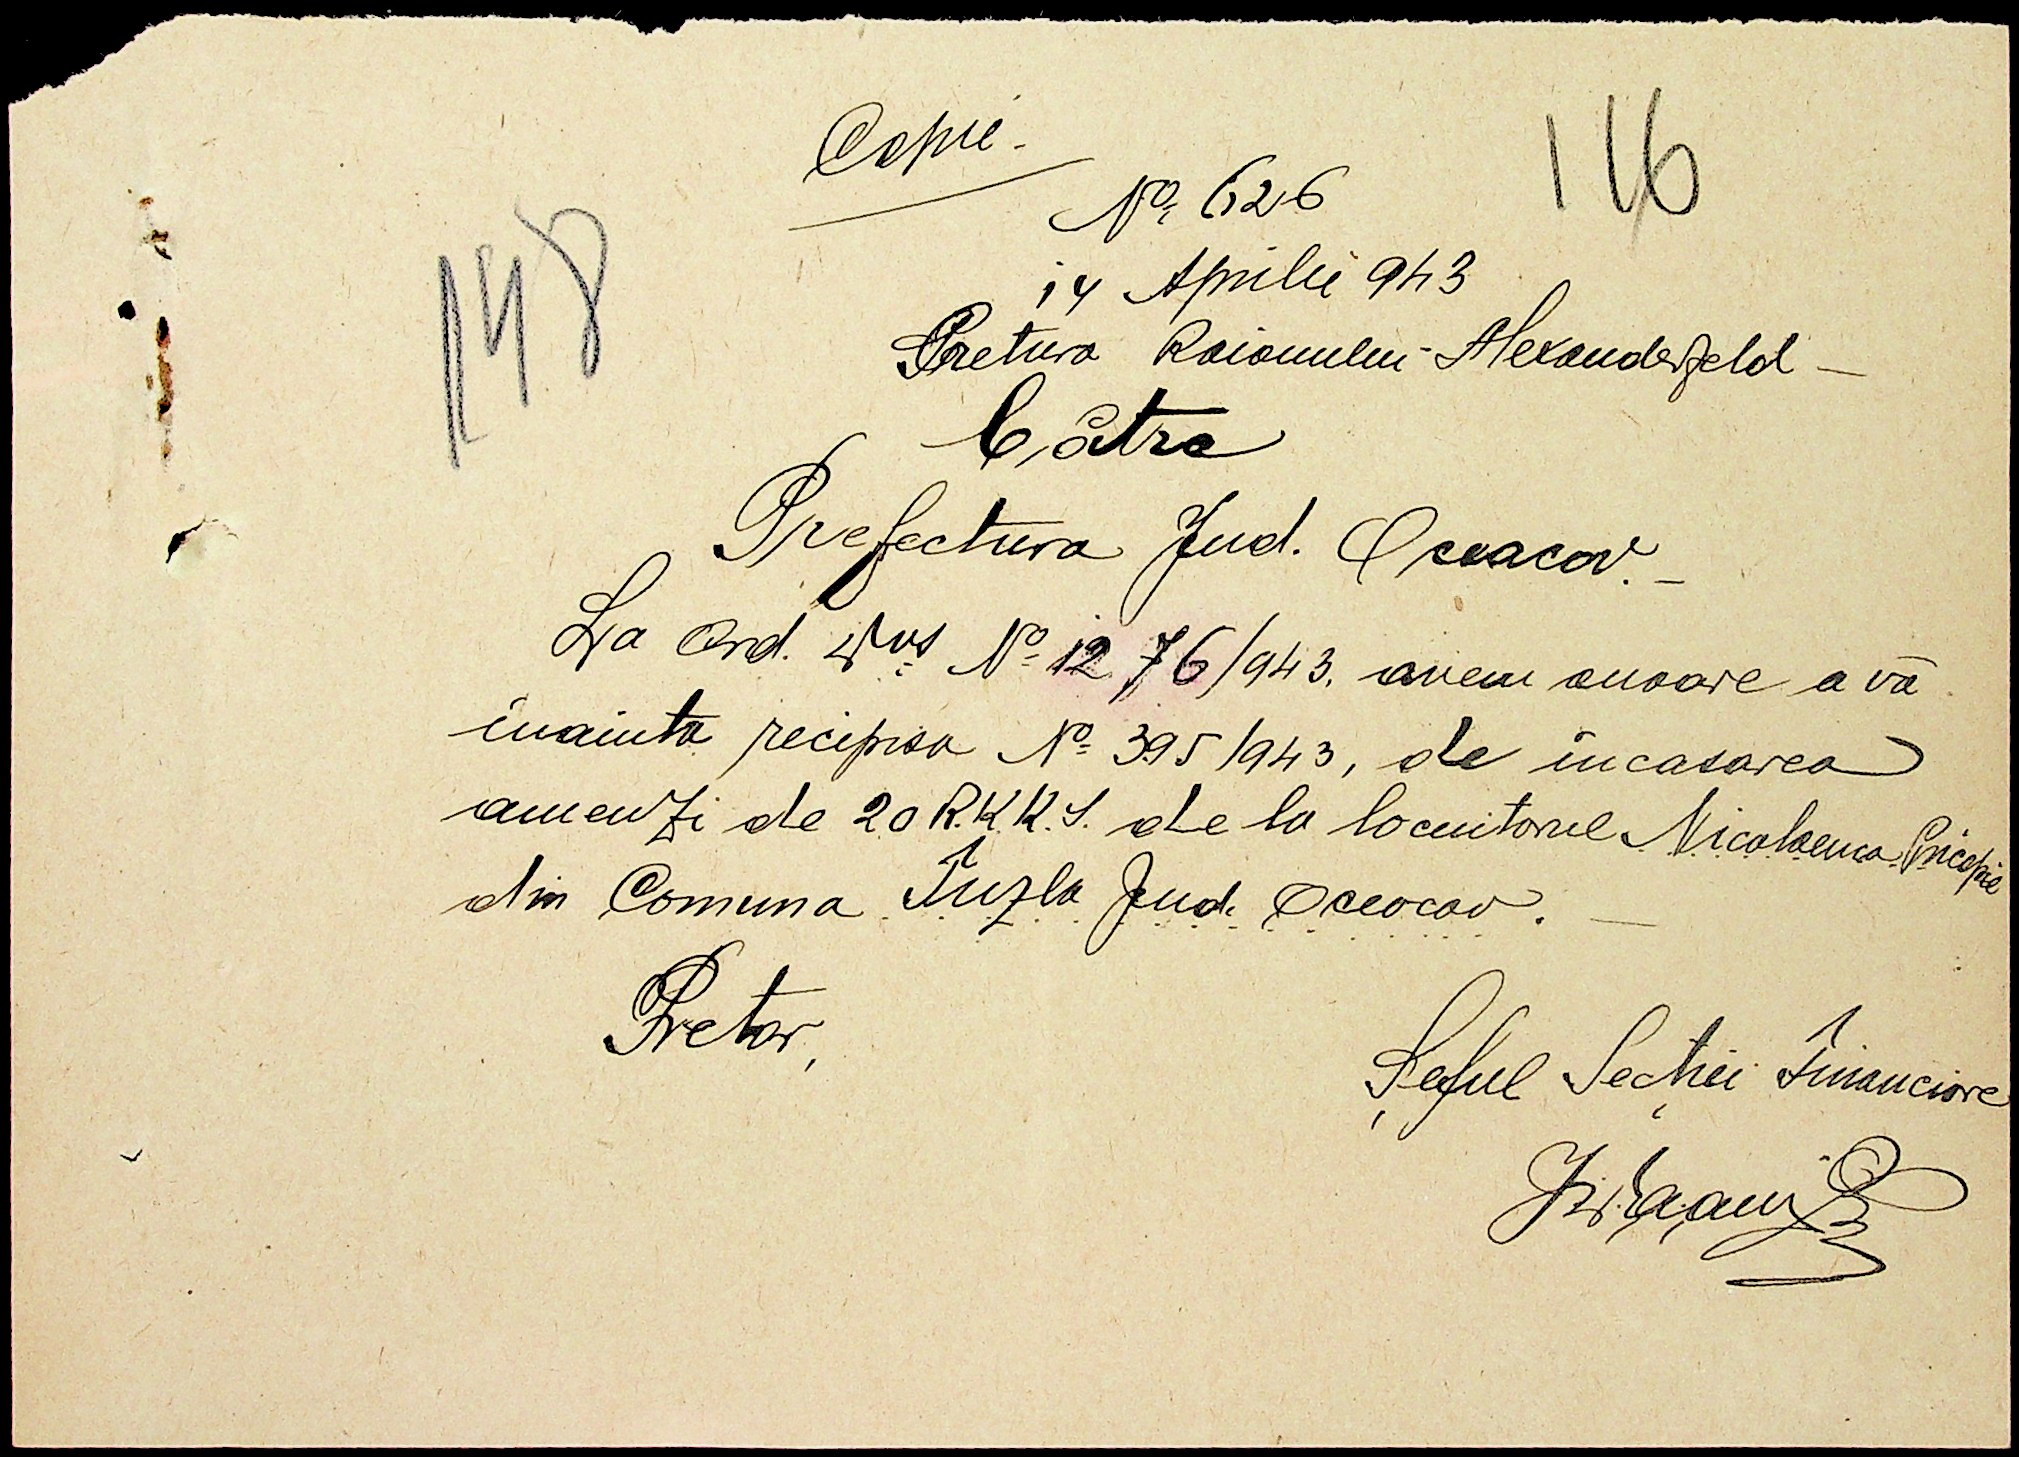 Copie.
116
No. 626
148
14 Aprilie 943
Pretura Raionului Alexanderfeld -
Către
Prefectura Jud. Oceacov. -
La Ord. Dvs No 1276/943. avem onoare a vă
înainta recipisa No 395/943, de încasarea
amenzi de 20 R.K.K.S. de la locuitorul Nicolaenco Pricopie
din Comuna Tuzla Jud. Oceacov. -
Pretor,
Șeful Secției Financiare